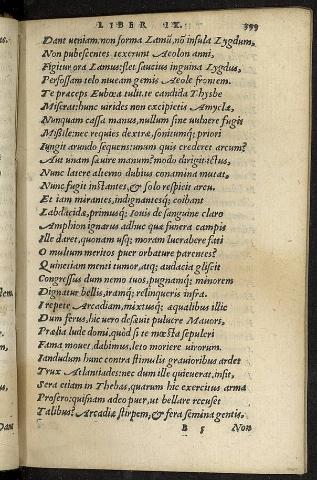 LIBER IX. 399
Dant ueniam, non forma Lamũ, nõ insula Lygdum,
Non pubescentes texerunt Aeolon anni,
Figitur ora Lamus: flet saucius inguina Lygdus,
Perfossam telo niueam gemis Aeole frontem.
Te præceps Eubœa tulit, te candida Thysbe
Miserat: hunc uirides non excipietis Amyclæ,
Nunquam cassa manus, nullum sine uulnere fugit
Missile: nec requies dextræ, sonitumq; priori
Iungit arundo sequens: unum quis crederet arcum?
Aut unam sæuire manum? modo dirigit ictus,
Nunc latere alterno dubius conamina mutat,
Nunc fugit instantes, & solo respicit arcu.
Et iam mirantes, indignantesq; coibant
Labdacidæ, primusq; Iouis de sanguine claro
Amphion ignarus adhuc quæ funera campis
Ille daret, quonam usq; moram lucrabere fati
O multum meritos puer orbature parentes?
Quinetiam menti tumor, atq; audacia gliscit
Congressus dum nemo tuos, pugnamq; minorem
Dignatur bellis, iramq; relinqueris infra.
I repete Arcadiam, mixtusq; æqualibus illic
Dum ferus, hic uero desæuit puluere Mauors,
Prælia lude domi, quòd si te mœsta sepulcri
Fama mouet, dabimus, leto moriere uirorum.
Iandudum hunc contra stimulis grauioribus ardet
Trux Atlantiades: nec dum ille quieuerat, insit,
Sera etiam in Thebas, quarum hic exercitus arma
Profero: quisnam adeo puer, ut bellare recuset
Talibus? Arcadiæ stirpem, & fera semina gentis,
B 5 Non